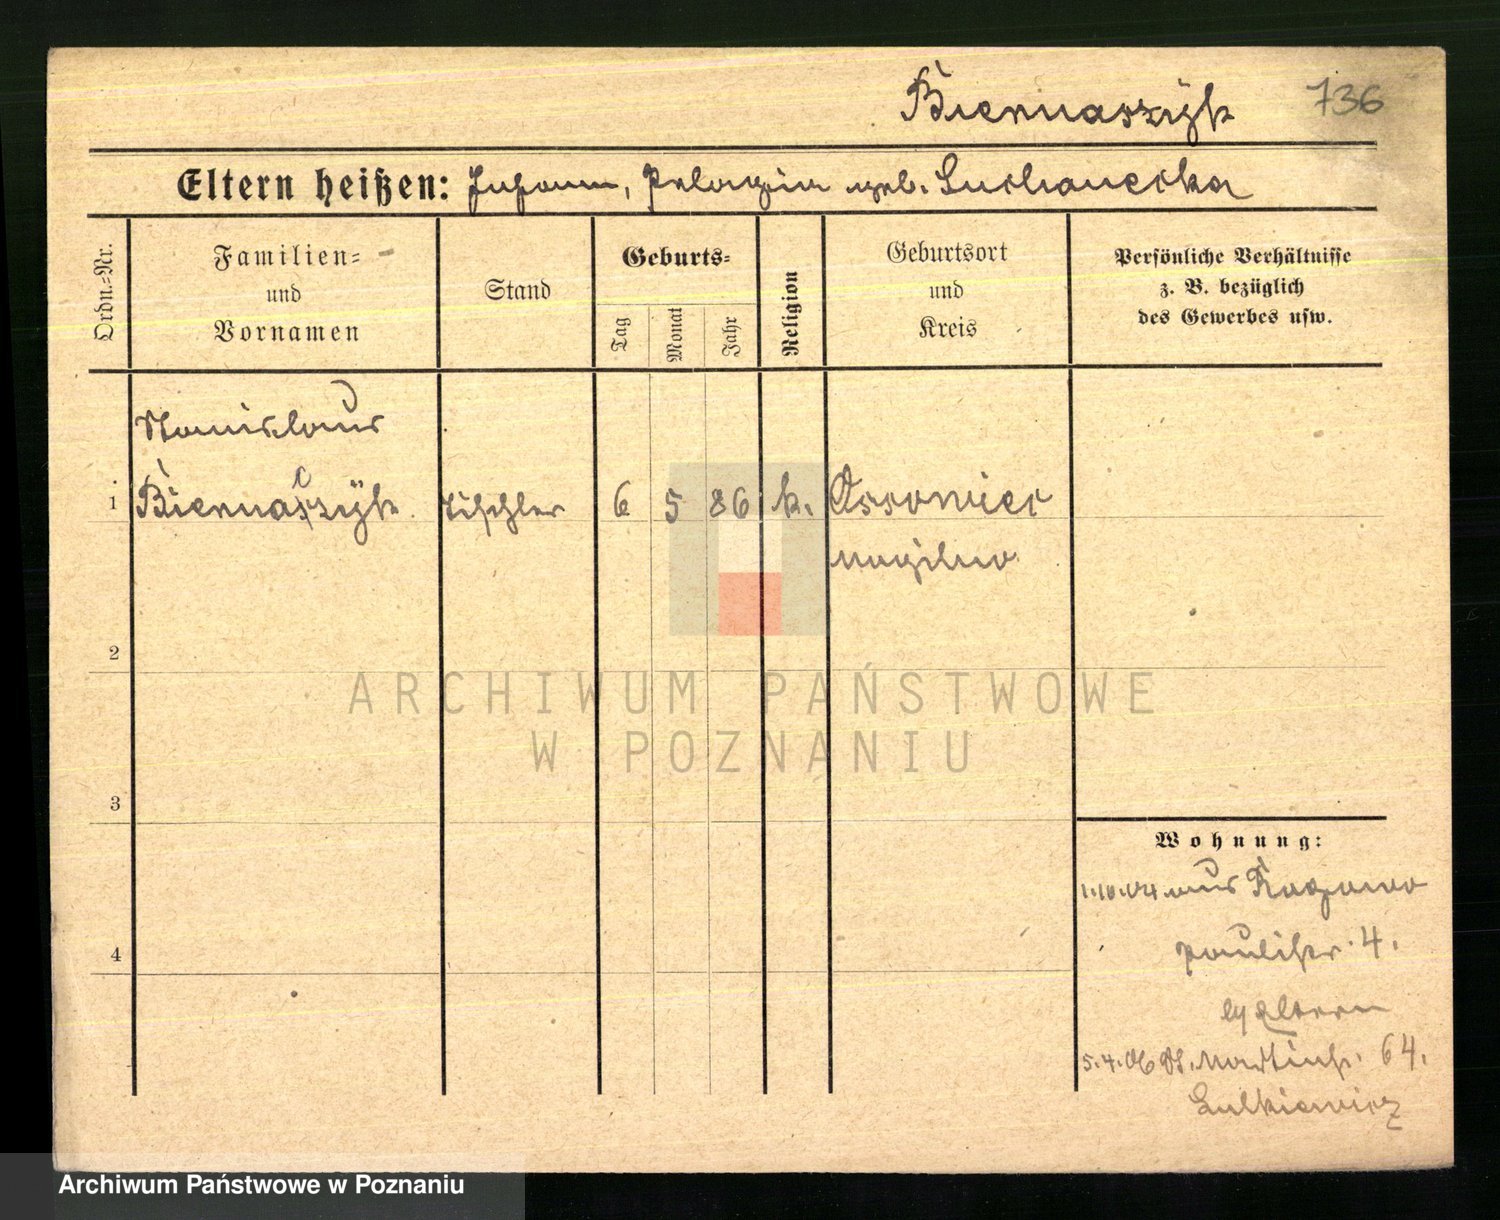 Biernaszyk 736
Eltern heißen: Johann, Pelagia geb. Suchanecka
Ordn.-Nr.
Familien-
und
Vornamen
Stand
Geburts-
Tag
Monat
Jahr
Religion
Geburtsort
und
Kreis
Persönliche Verhältnisse
z. B. bezüglich
des Gewerbes usw.
Stanislaus
1 Biernaczyk Tischler 6 5 86 k. Ossowiec
Mogilno
2
3
4
Wohnung:
1.10.04 aus
Paulistr. 4.
b/ Eltern
5.4.06 St. Martinstr. 64.
Lulkiewicz
ARCHIWUM PAŃSTWOWE
W POZNANIU
Archiwum Państwowe w Poznaniu